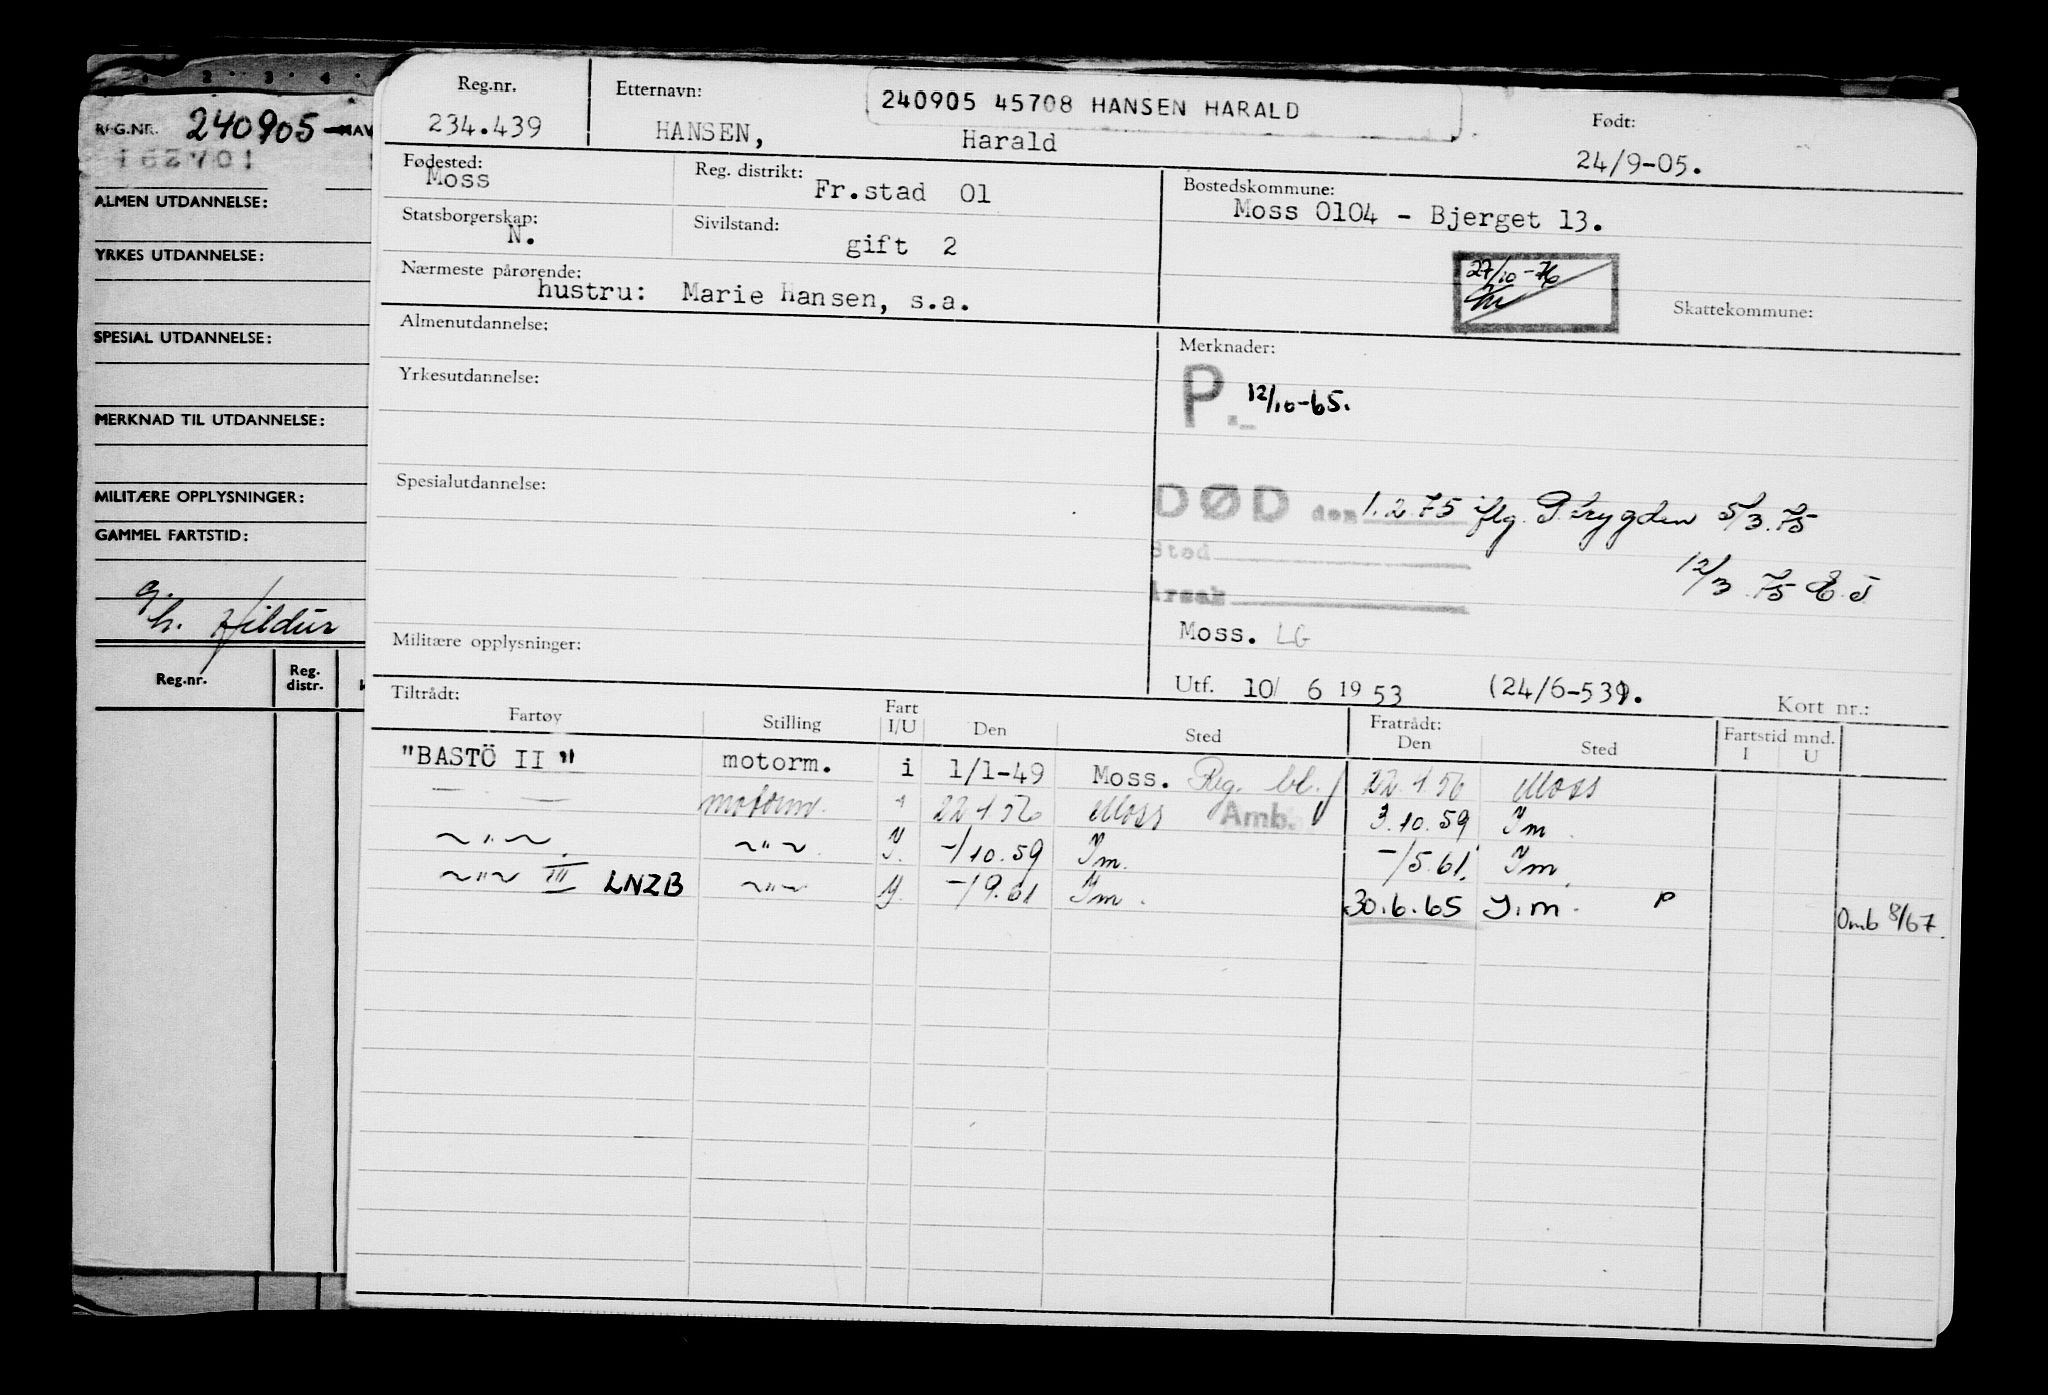 1 2 3 4
REG.NR. 240905 NAV
162701
ALMEN UTDANNELSE:
YRKES UTDANNELSE:
SPESIAL UTDANNELSE:
MERKNAD TIL UTDANNELSE:
MILITÆRE OPPLYSNINGER:
GAMMEL FARTSTID:
g.
h. Hildur
Reg.nr. Reg. distr.
Reg.nr. Etternavn: 240905 45708 HANSEN HARALD Født:
234.439 HANSEN, Harald 24/9-05.
Fødested: Reg. distrikt: Bostedskommune:
Moss Fr.stad 01 Moss 0104 - Bjerget 13.
Statsborgerskap: Sivilstand:
N. gift 2
27/10-76
Nærmeste pårørende: Skattekommune:
hustru: Marie Hansen, s.a.
Almenutdannelse: Merknader:
Yrkesutdannelse: P. 12/10-65.
Spesialutdannelse: DØD den 1.2.75 iflg. P.trygden 5/3.75
Sted
Årsak 12/3.75 E.J
Militære opplysninger: Moss. LG
Utf. 10/ 6 19 53 (24/6-539). Kort nr.:
Tiltrådt: Fart Fratrådt: Fartstid mnd.
Fartøy Stilling I/U Den Sted Den Sted I U
"BASTÖ II" motorm. i 1/1-49 Moss. Reg. bl. 22.1 56 Moss
— — motorm. " 22 1 56 Moss Amb. 3.10.59 Ym.
~"~ ~"~ Y. -/10.59 Ym. -/5.61. Ym.
~"~ III LNZB ~"~ Y. -/9.61 Ym. 30.6.65 Y.m. P Omb 8/67.